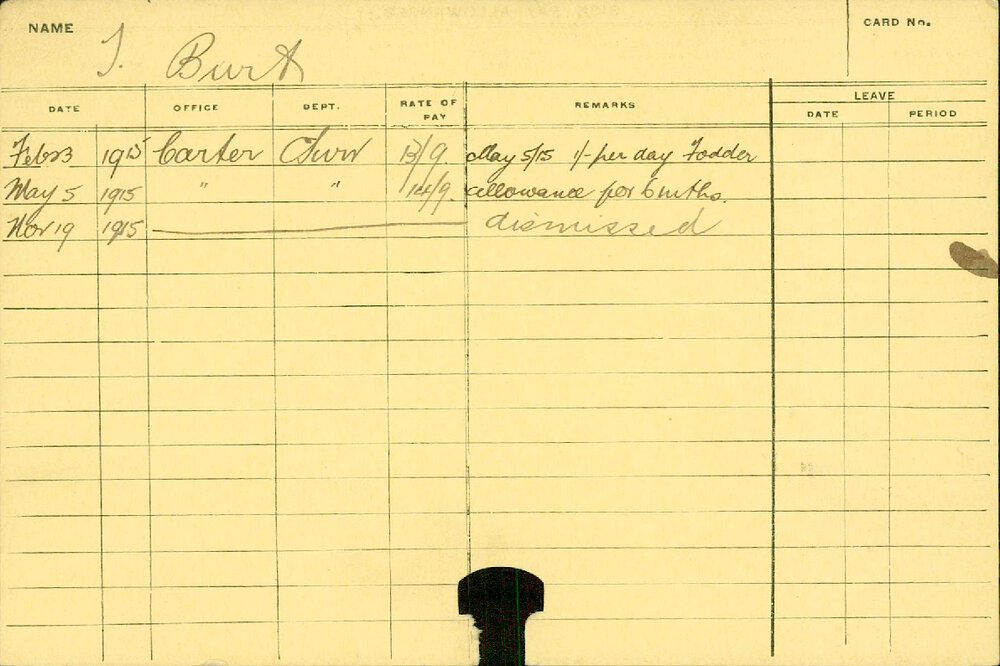 NAME T. Burt CARD No.
DATE OFFICE DEPT. RATE OF PAY REMARKS LEAVE
DATE PERIOD
Feb 23 1915 Carter 13/9. May 5/15 1/- per day Fodder
May 5 1915 " " 14/9. allowance for 6 mths.
Nov 19 1915 dismissed